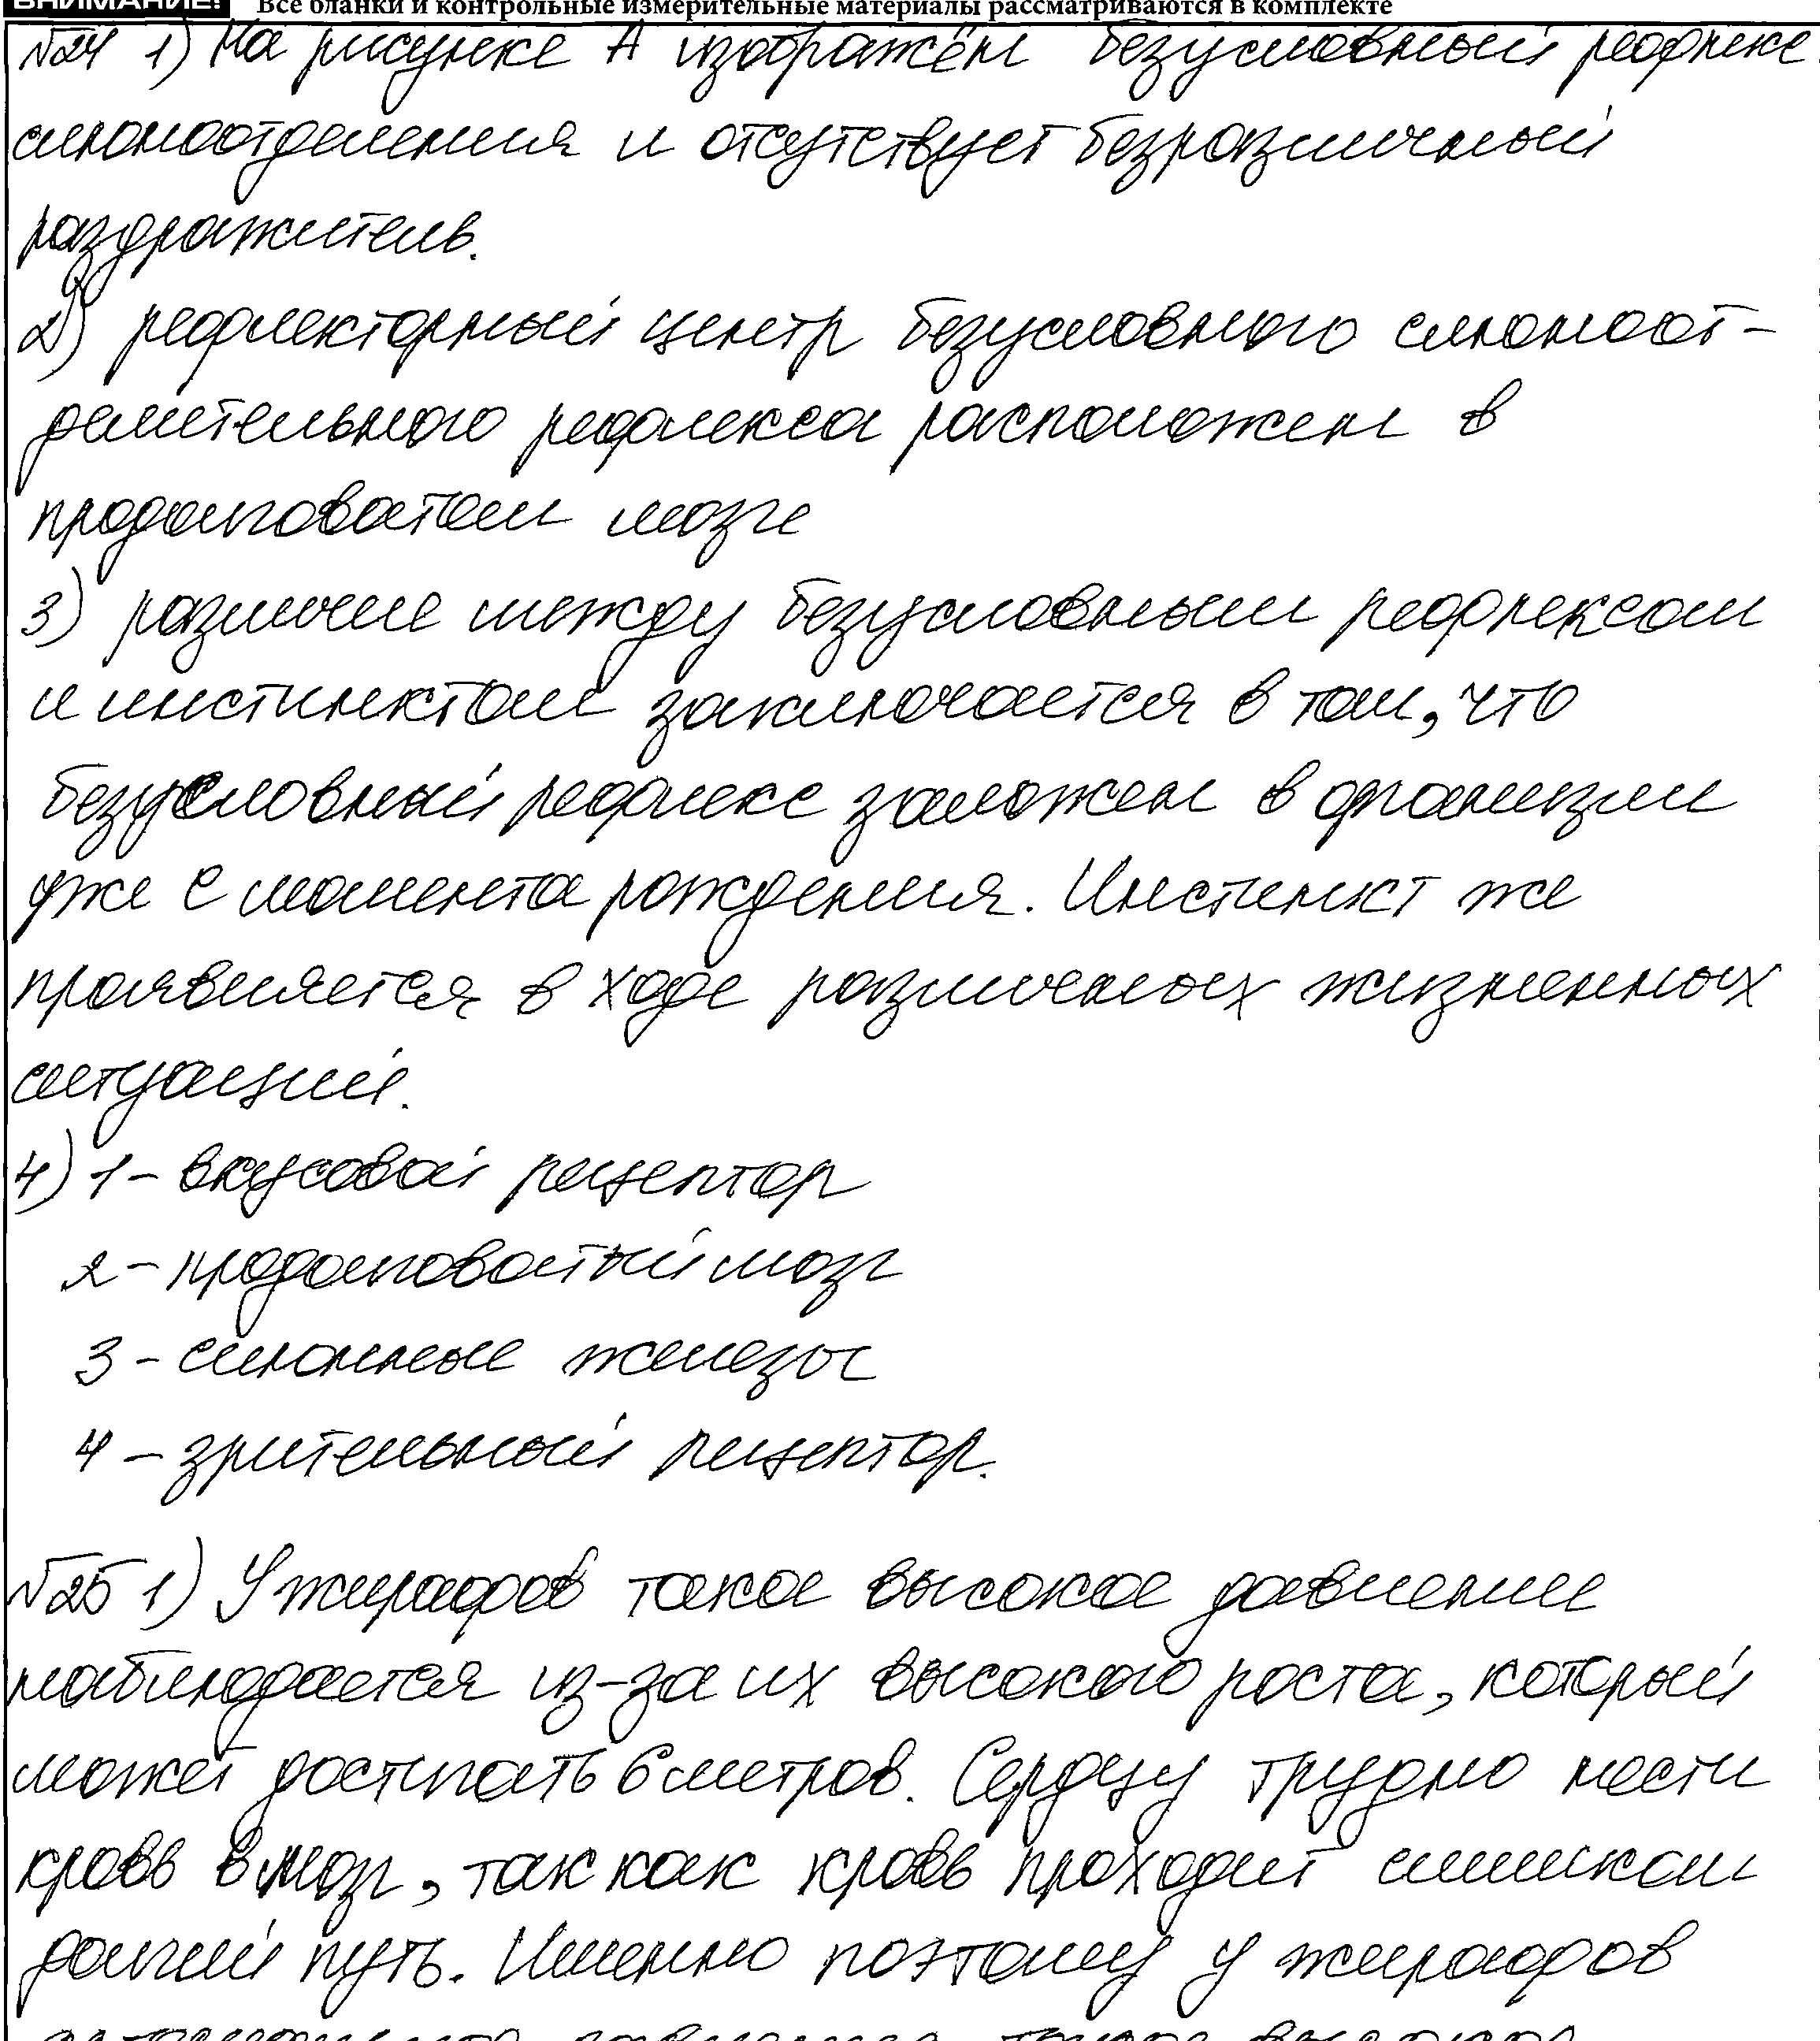 ВНИМАНИЕ! Все бланки и контрольные измерительные материалы рассматриваются в комплекте
№24 1) На рисунке А изображён безусловный рефлекс
слюноотделения и отсутствует безразличный
раздражитель.
2) рефлекторный центр безусловного слюноот-
делительного рефлекса расположен в
продолговатом мозге
3) различие между безусловным рефлексом
и инстинктом заключается в том, что
безусловный рефлекс заложен в организм
уже с момента рождения. Инстинкт же
проявляется в ходе различных жизненных
ситуаций.
4) 1 - вкусовой рецептор
2 - продолговатый мозг
3 - слюнные железы
4 - зрительный рецептор.
№25 1) У жирафов такое высокое давление
наблюдается из-за их высокого роста, который
может достигать 6 метров. Сердцу трудно нести
кровь в мозг, так как кровь проходит слишком
долгий путь. Именно поэтому у жирафов